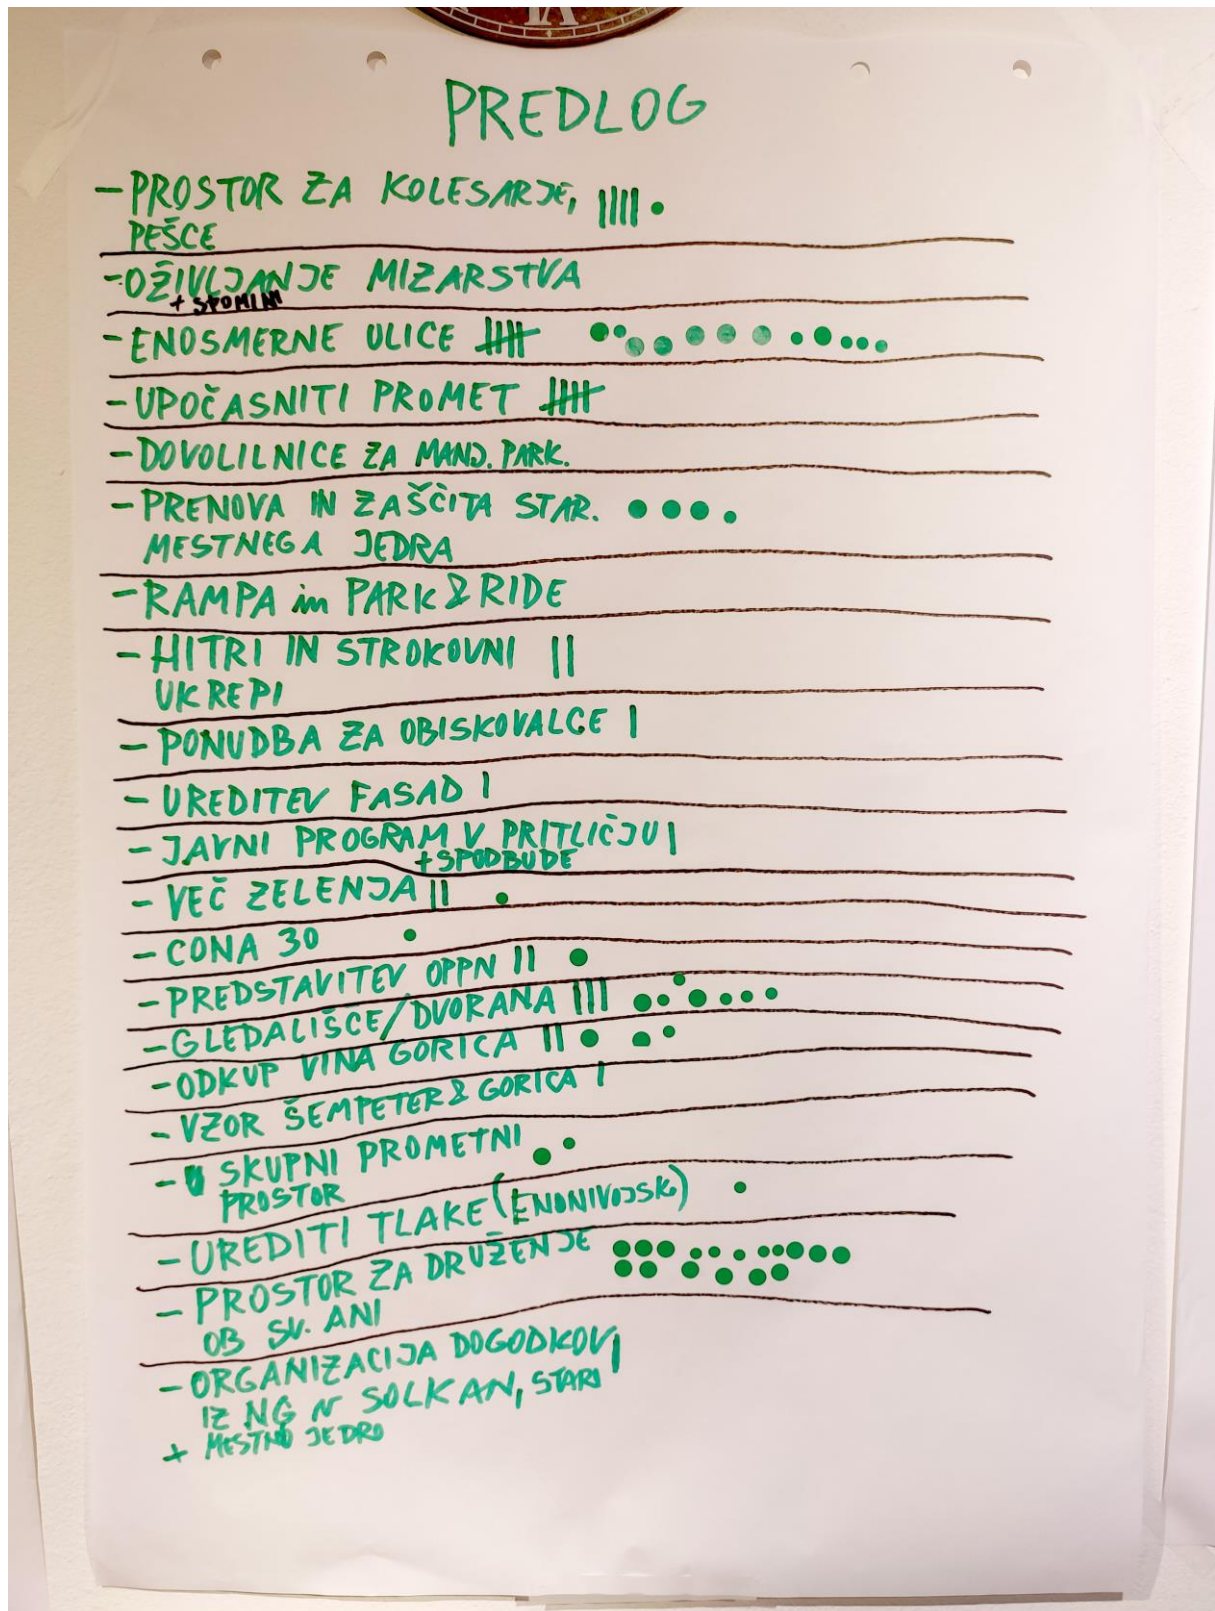 VI
PREDLOG
- PROSTOR ZA KOLESARJE, ||||
PEŠCE
- OŽIVLJANJE MIZARSTVA
+ SPOMINI
- ENOSMERNE ULICE ||||
- UPOČASNITI PROMET ||||
- DOVOLILNICE ZA MANJ. PARK.
- PRENOVA IN ZAŠČITA STAR.
MESTNEGA JEDRA
- RAMPA in PARK & RIDE
- HITRI IN STROKOVNI ||
UKREPI
- PONUDBA ZA OBISKOVALCE |
- UREDITEV FASAD |
- JAVNI PROGRAM V PRITLIČJU |
+ SPODBUDE
- VEČ ZELENJA ||
- CONA 30
- PREDSTAVITEV OPPN ||
- GLEDALIŠCE/DVORANA |||
- ODKUP VINA GORICA ||
- VZOR ŠEMPETER & GORICA |
- SKUPNI PROMETNI
PROSTOR
- UREDITI TLAKE (ENONIVOJSK)
- PROSTOR ZA DRUŽENJE
OB SV. ANI
- ORGANIZACIJA DOGODKOV |
IZ NG V SOLKAN, STARO
+ MESTNO JEDRO